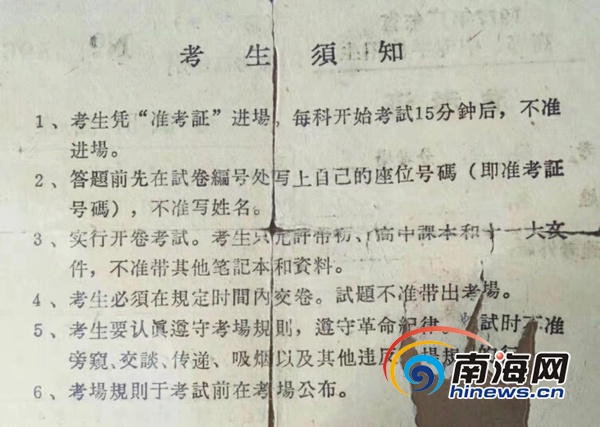 考生須知
1、考生凭“准考証”进場，每科开始考試15分鈡后，不准
进場。
2、答題前先在試卷編号处写上自己的座位号碼（即准考証
号碼），不准写姓名。
3、实行开卷考試。考生只允許带初、高中課本和十一大文
件，不准带其他笔記本和資料。
4、考生必須在規定时間內交卷。試題不准带出考場。
5、考生要认眞遵守考場規則，遵守革命紀律。 試时不准
旁窺、交談、传递、吸烟以及其他违 場規
6、考場規則于考試前在考場公布。
南海网
hinews.cn